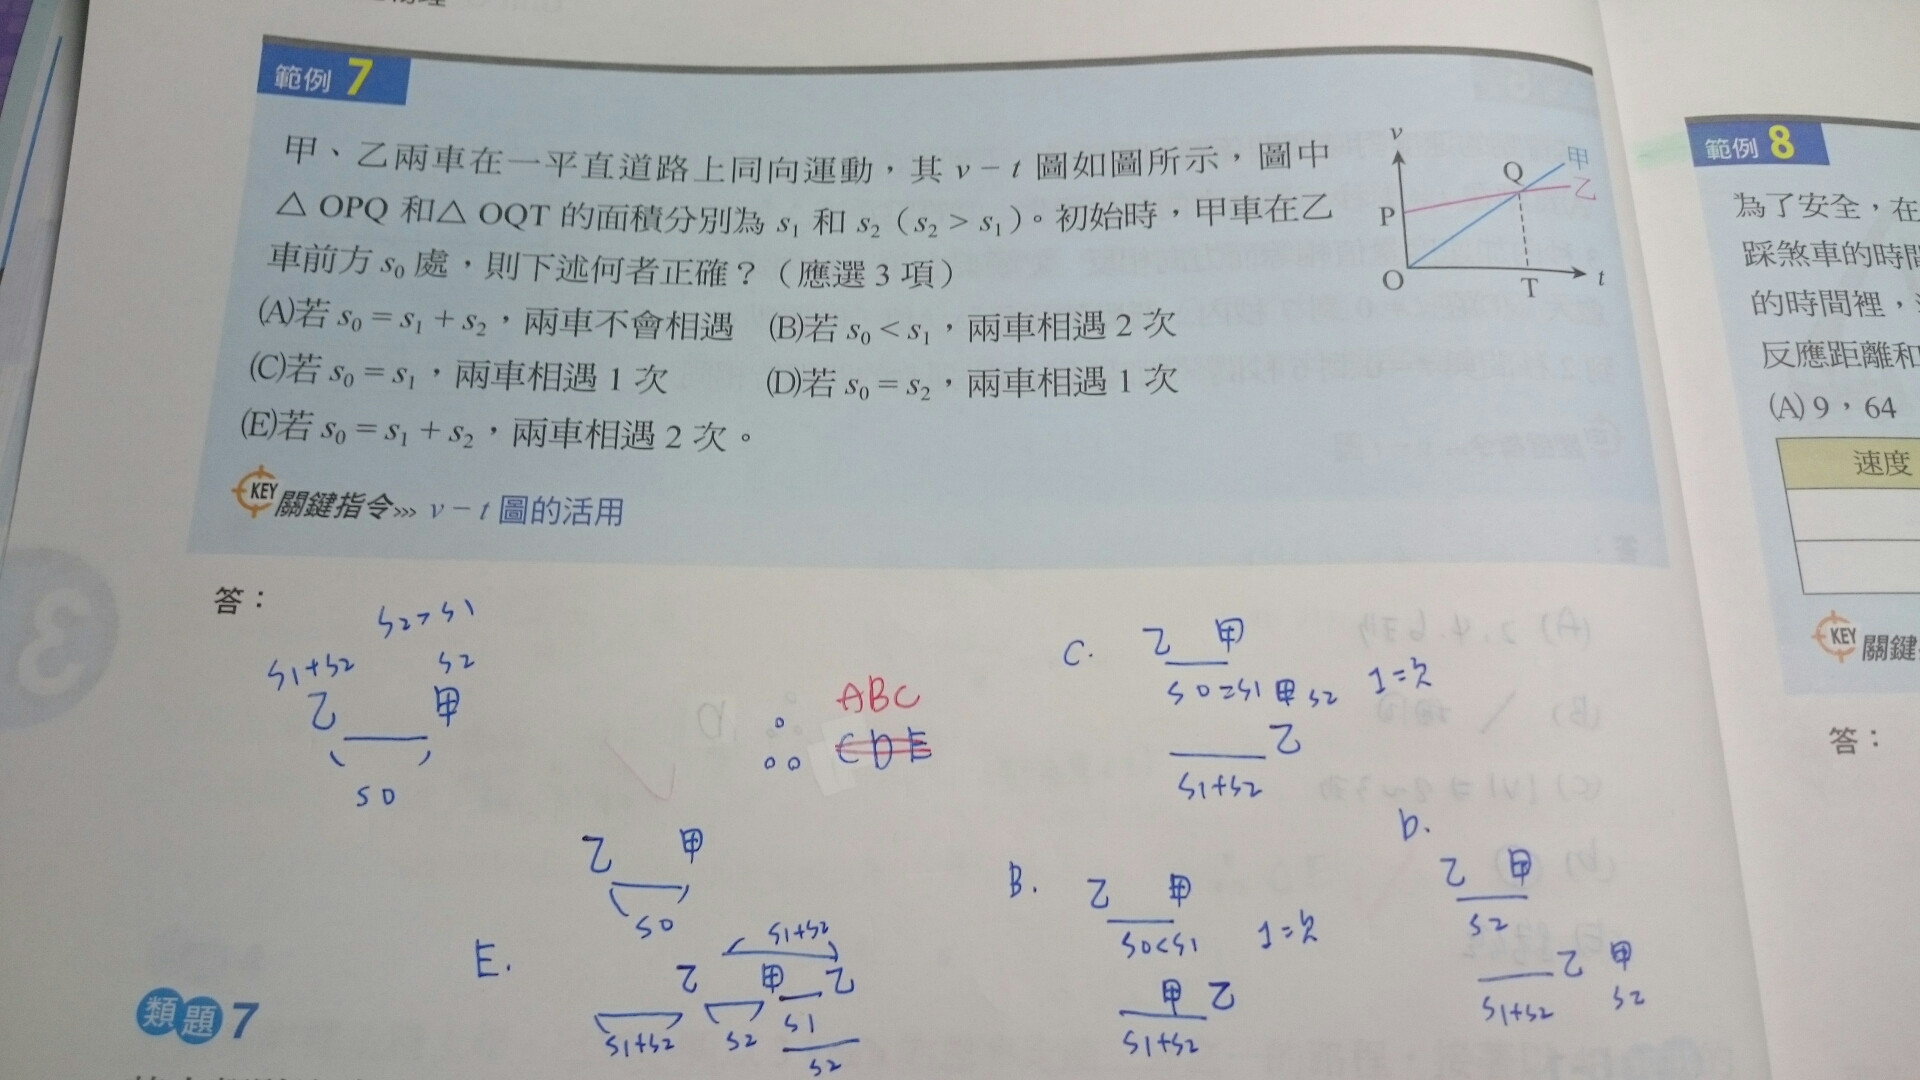 範例 7
甲、乙兩車在一平直道路上同向運動,其 v – t 圖如圖所示,圖中
△ OPQ 和△ OQT 的面積分別為 s₁ 和 s₂(s₂ > s₁)。初始時,甲車在乙
車前方 s₀ 處,則下述何者正確?(應選 3 項)
(A)若 s₀ = s₁ + s₂,兩車不會相遇 (B)若 s₀ < s₁,兩車相遇 2 次
(C)若 s₀ = s₁,兩車相遇 1 次 (D)若 s₀ = s₂,兩車相遇 1 次
(E)若 s₀ = s₁ + s₂,兩車相遇 2 次。
KEY 關鍵指令>>> v – t 圖的活用
v
甲
乙
Q
P
O
T
t
答:
S2>S1
S1+S2 S2
乙 甲
S0
ABC
∴ CDE
C. 乙 甲
S0=S1 甲 S2 1=次
乙
S1+S2
乙 甲
S0
E.
S1+S2
乙 甲 乙
S1+S2 S2 S1
S2
B. 乙 甲
S0<S1 1=次
甲 乙
S1+S2
D.
乙 甲
S2
乙 甲
S1+S2 S2
類題 7
3
範例 8
為了安全,在
踩煞車的時間
的時間裡,
反應距離和
(A) 9,64
速度
KEY 關鍵
答: